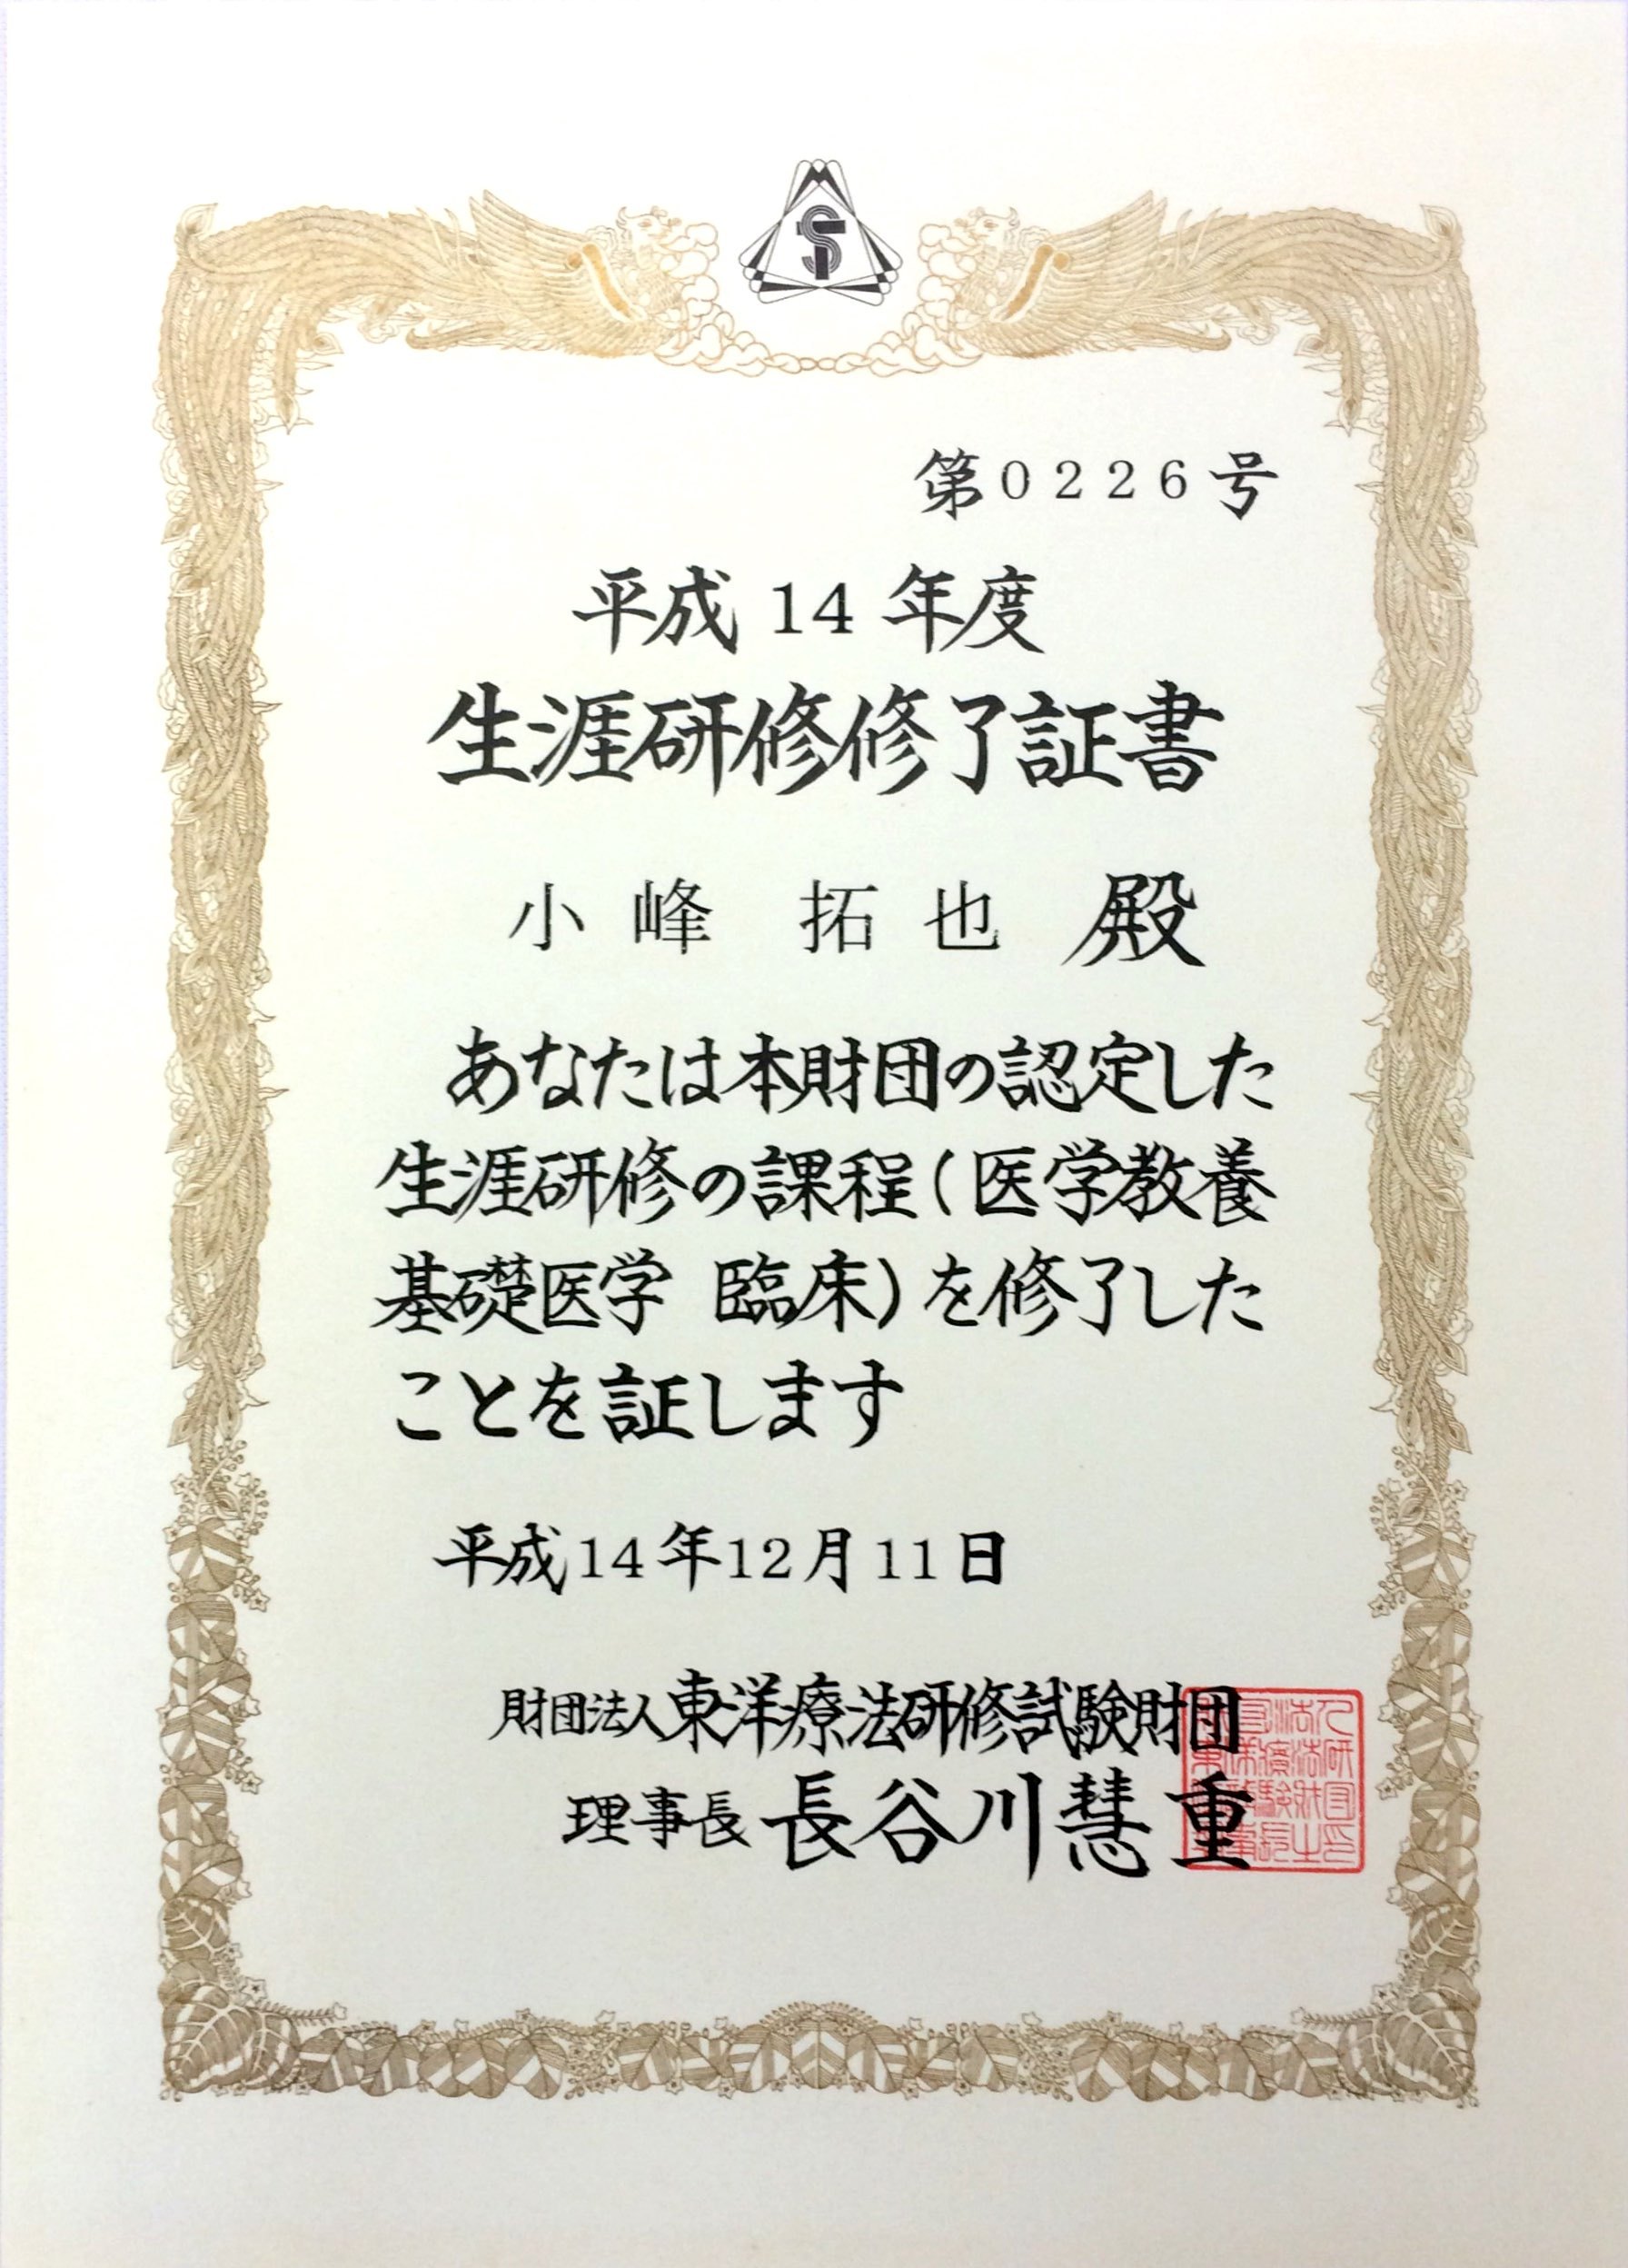 第0226号
平成 14 年度
生涯研修修了証書
小峰 拓也 殿
あなたは本財団の認定した
生涯研修の課程(医学教養
基礎医学 臨床)を修了した
ことを証します
平成14年12月11日
財団法人東洋療法研修試験財団
理事長 長谷川慧重